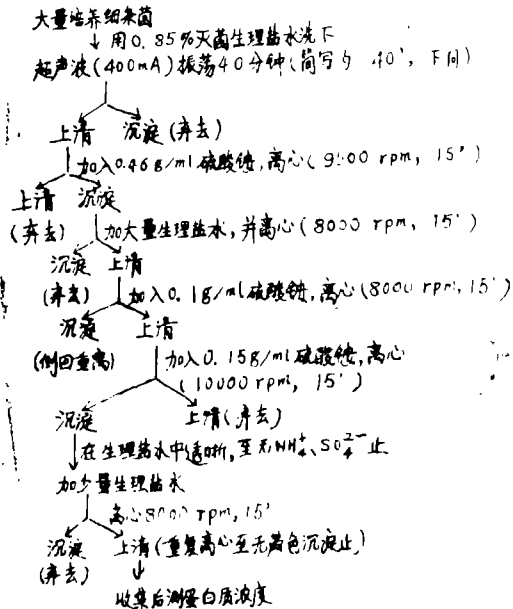 大量培养细杀菌
用0.85%灭菌生理盐水洗下
超声波(400mA)振荡40分钟(简写为 40′, 下同)
上清 沉淀(弃去)
加入0.46g/ml硫酸铵,离心(9500 rpm, 15′)
上清 沉淀
(弃去) 加大量生理盐水,并离心(8000 rpm, 15′)
沉淀 上清
(弃去) 加入0.1g/ml硫酸铵,离心(8000 rpm, 15′)
沉淀 上清
(倒回重离) 加入0.15g/ml硫酸铵,离心
(10000 rpm, 15′)
沉淀 上清(弃去)
在生理盐水中透析,至无NH₄⁺、SO₄²⁻止
加少量生理盐水
离心8000 rpm, 15′
沉淀 上清(重复离心至无黄色沉淀止)
(弃去)
收集后测蛋白质浓度